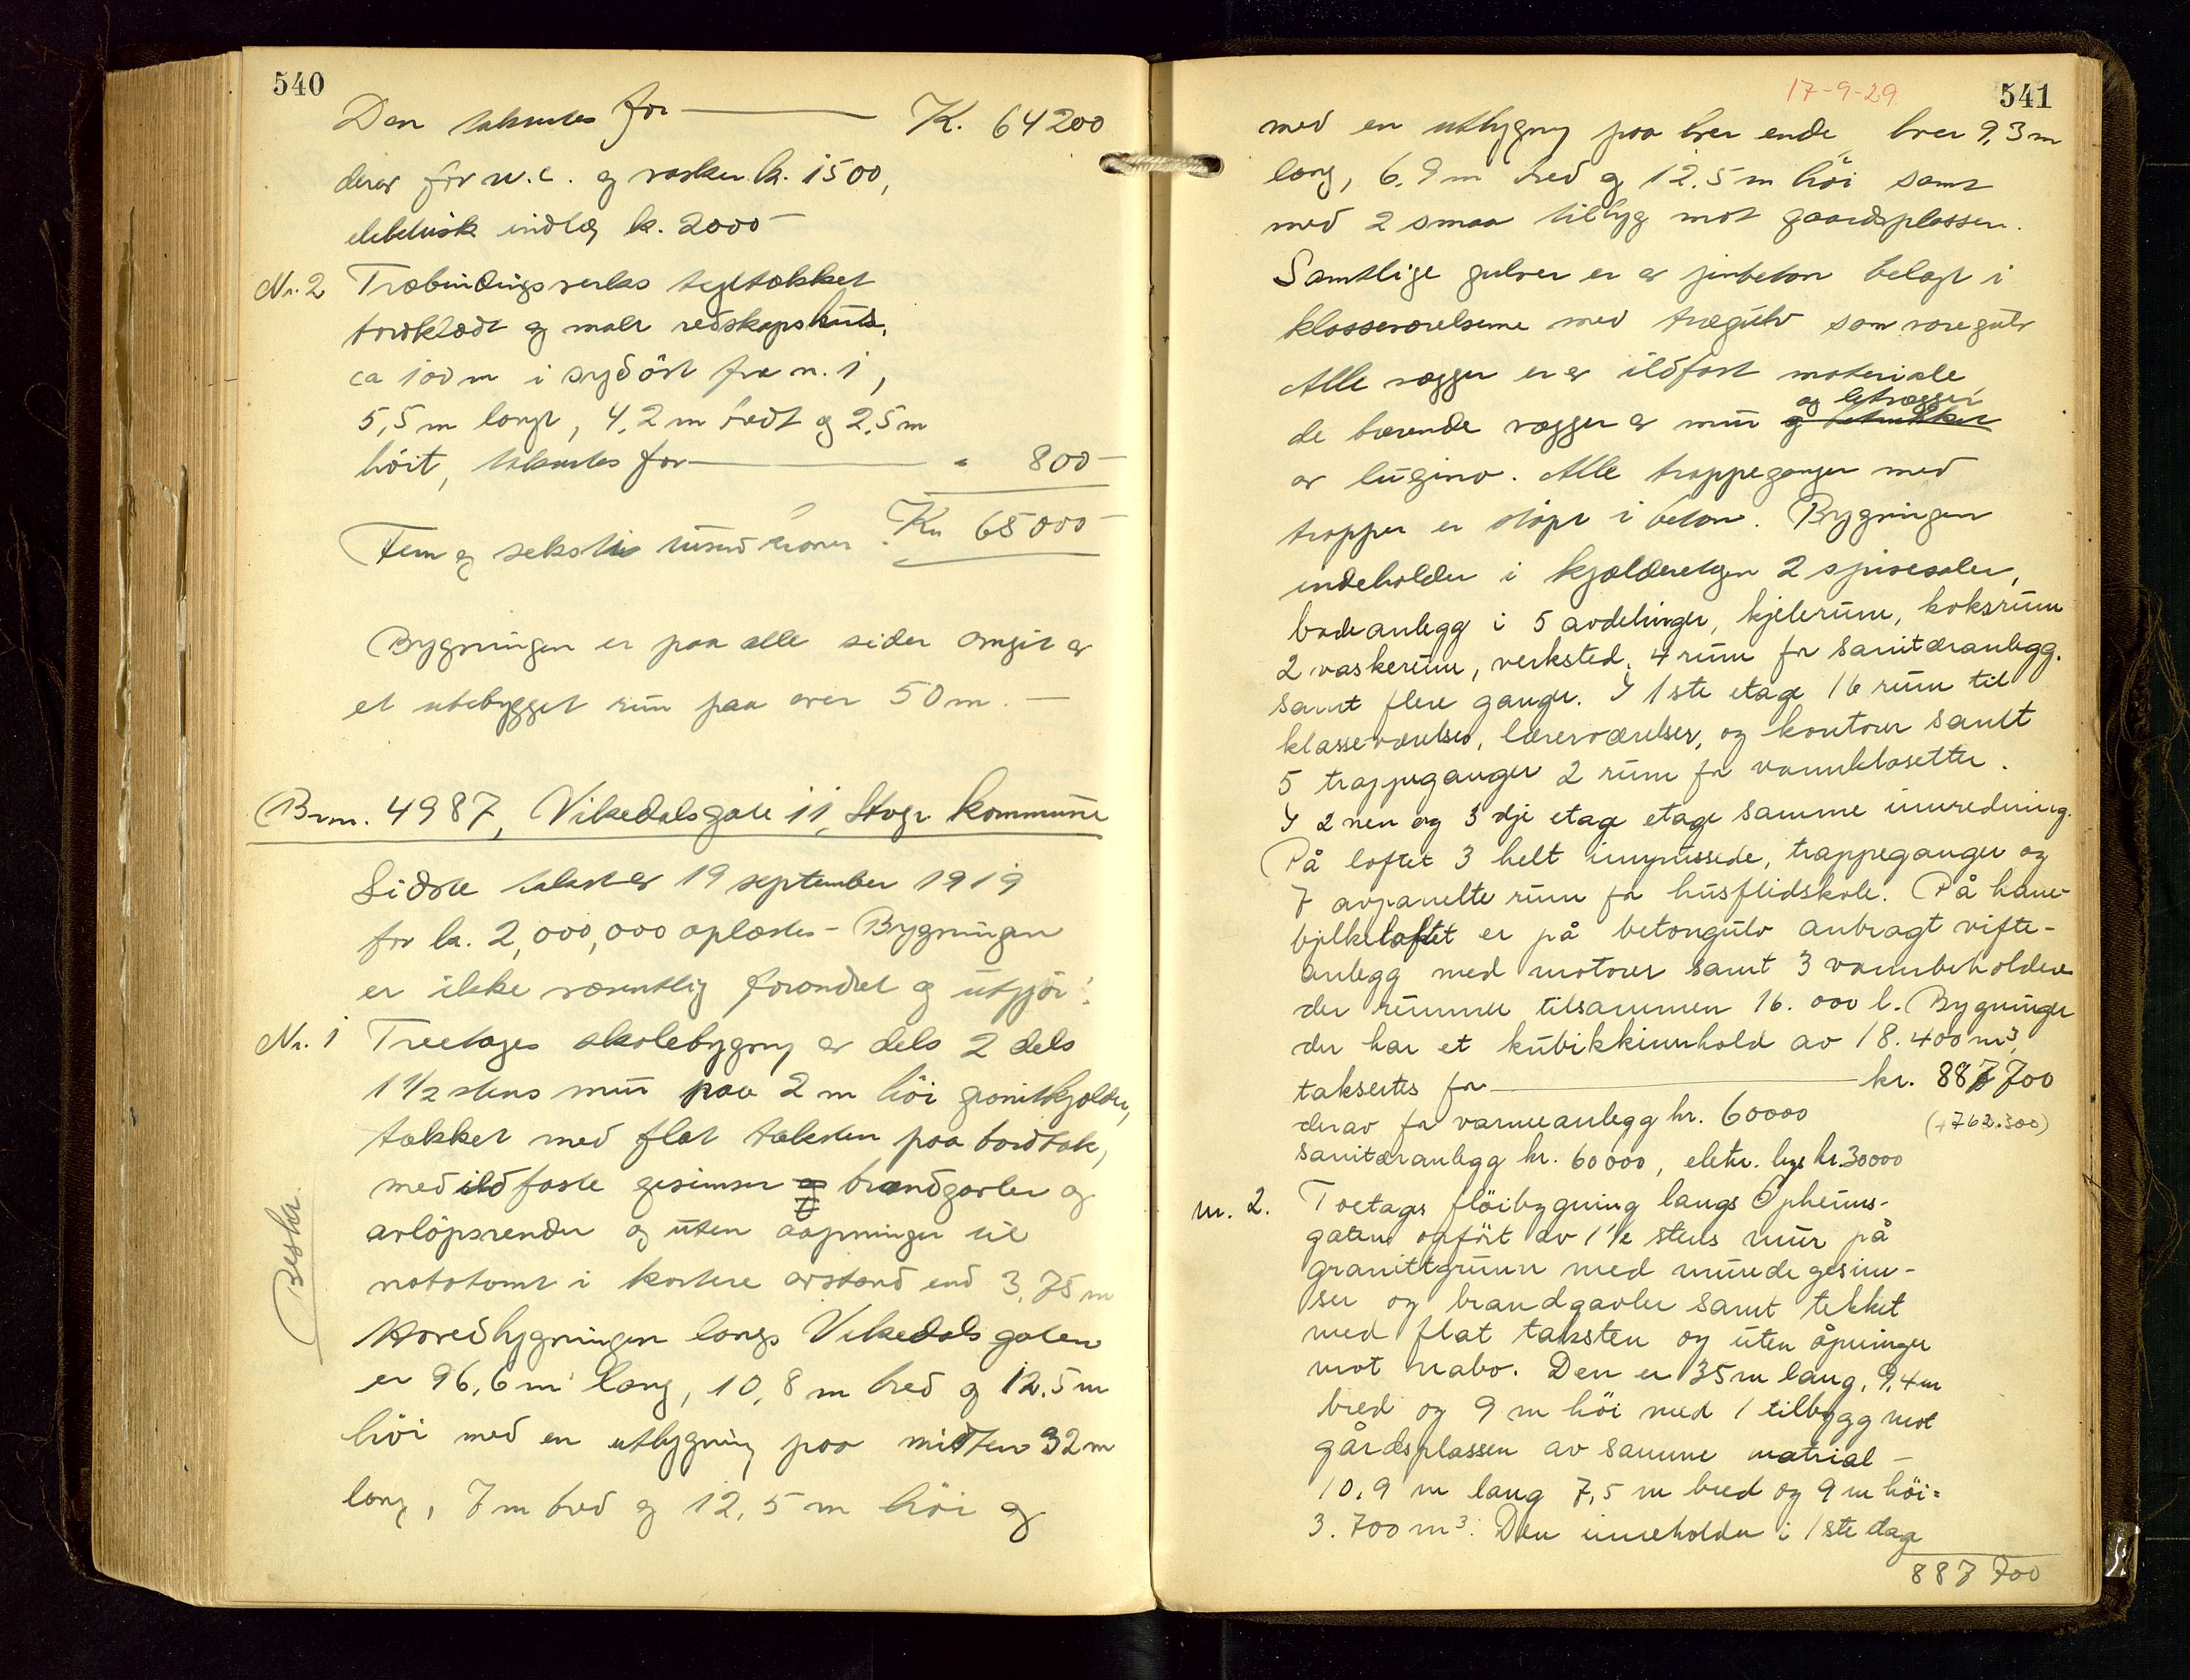 540
Den takseres for K. 64200
derav for w.c. og vasker k. 1500,
elektrisk indlæg k. 2000
Nr. 2 Træbindingsverks tegltækket
bordklædt og malt redskapshus,
ca 100 m i sydöst fra n. 1,
5,5 m langt, 4,2 m bredt og 2,5 m
höit, takseres for " 800
Fem og seksti tusind kroner Kr 65000
Bygningen er paa alle sider omgit av
et utebygget rum paa over 50 m.
Brnr. 4987, Vikedalsgate 11, Stvgr kommune
Sidste takst av 19 september 1919
for kr. 2,000,000 oplæstes - Bygningen
er ikke væsentlig forandret og utgjör:
Nr. 1 Treetages skolebygning av dels 2 dels
1 1/2 stens mur paa 2 m höi granitkjælder,
tækket med flat taksten paa bordtak,
med ildfaste gesimser og brandgavler og
avlöpsrender og uten aapninger til
nabotomt i kortere avstand end 3,75 m
Hovedbygningen langs Vikedalsgaten
er 96,6 m lang, 10,8 m bred og 12,5 m
höi med en utbygning paa midten 32 m
lang, 7 m bred og 12,5 m höi og
Beskr.
17-9-29.
541
med en utbygning paa hver ende, hver 9,3 m
lang, 6,9 m bred og 12,5 m höi samt
med 2 smaa tilbyg mot gaardsplassen.
Samtlige gulver er av jernbeton belagt i
klasseværelserne med trægulv som varegulv
Alle vægger er av ildfast materiale,
og letvægger
de bærende vægger av mur og
av lugino. Alle trappeganger med
trapper er støpt i beton. Bygningen
indeholder i kjælderetagen 2 spisesaler,
badeanlegg i 5 avdelinger, kjelerum, koksrum
2 vaskerum, verksted, 4 rum for sanitæranlegg.
samt flere gange. I 1ste etage 16 rum til
klasseværelser, læreværelser, og kontorer samt
5 trappeganger 2 rum for vannklosetter.
I 2nen og 3dje etage etage samme innredning.
På loftet 3 helt innpussede, trappeganger og
7 avpanelte rum for husflidskole. På hane-
bjelkeloftet er på betongulv anbragt vifte-
anlegg med motorer samt 3 vannbeholdere
der rummer tilsammen 16.000 l. Bygningen
der har et kubikkinnhold av 18.400 m³,
takseres for kr. 887700
derav for varmeanlegg kr. 60000 (+762.300)
sanitæranlegg kr. 60000, elektr. lys kr. 30000
nr. 2. Toetages flöibygning langs Opheims-
gaten opført av 1 1/2 stens mur på
granittgrunn med murede gesim-
ser og brandgavler samt tekket
med flat taksten og uten åpninger
mot nabo. Den er 35 m lang, 9,4 m
bred og 9 m höi med 1 tilbygg mot
gårdsplassen av samme matrial -
10,9 m lang 7,5 m bred og 9 m höi =
3.700 m³. Den inneholder i 1ste etage
887 700